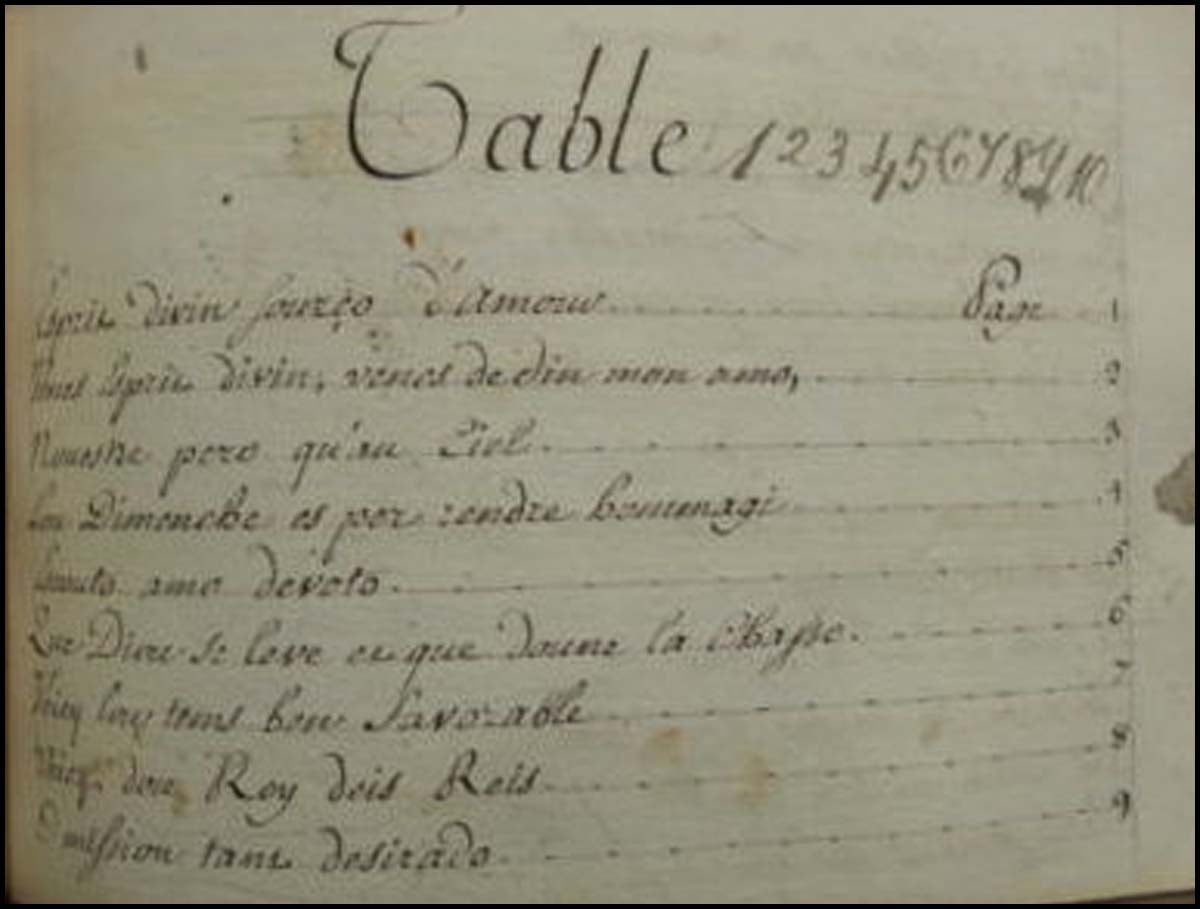 Table 1 2 3 4 5 6 7 8 9 10
Esprit divin sourço d'Amour Page 1
Venes Esprit divin, venes dedin mon amo, 2
Nouestre pero qu'au Ciel 3
Lou Dimenche es per rendre homenagi 4
amo devoto 5
Que Dieu se leve et que doune la Chasso. 6
lou tems ben favorable 7
dou Rey deis Reis 8
O mission tant desirado 9